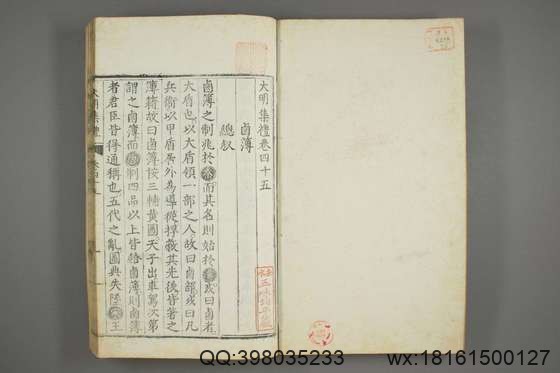 大明集禮卷四十五
鹵簿
總敘
鹵簿之制兆於秦而其名則始於漢或曰鹵者
大盾也以大盾領一部之人故曰鹵部或曰凡
兵衛以甲盾居外為導從捍蔽其先後皆著之
簿籍故曰鹵簿按三輔黃圖天子出車駕次第
謂之鹵簿而唐制四品以上皆給鹵簿則鹵簿
者君臣皆得通稱也五代之亂圖典失墜宋王
大明集禮
QQ:398035233
wx:18161500127